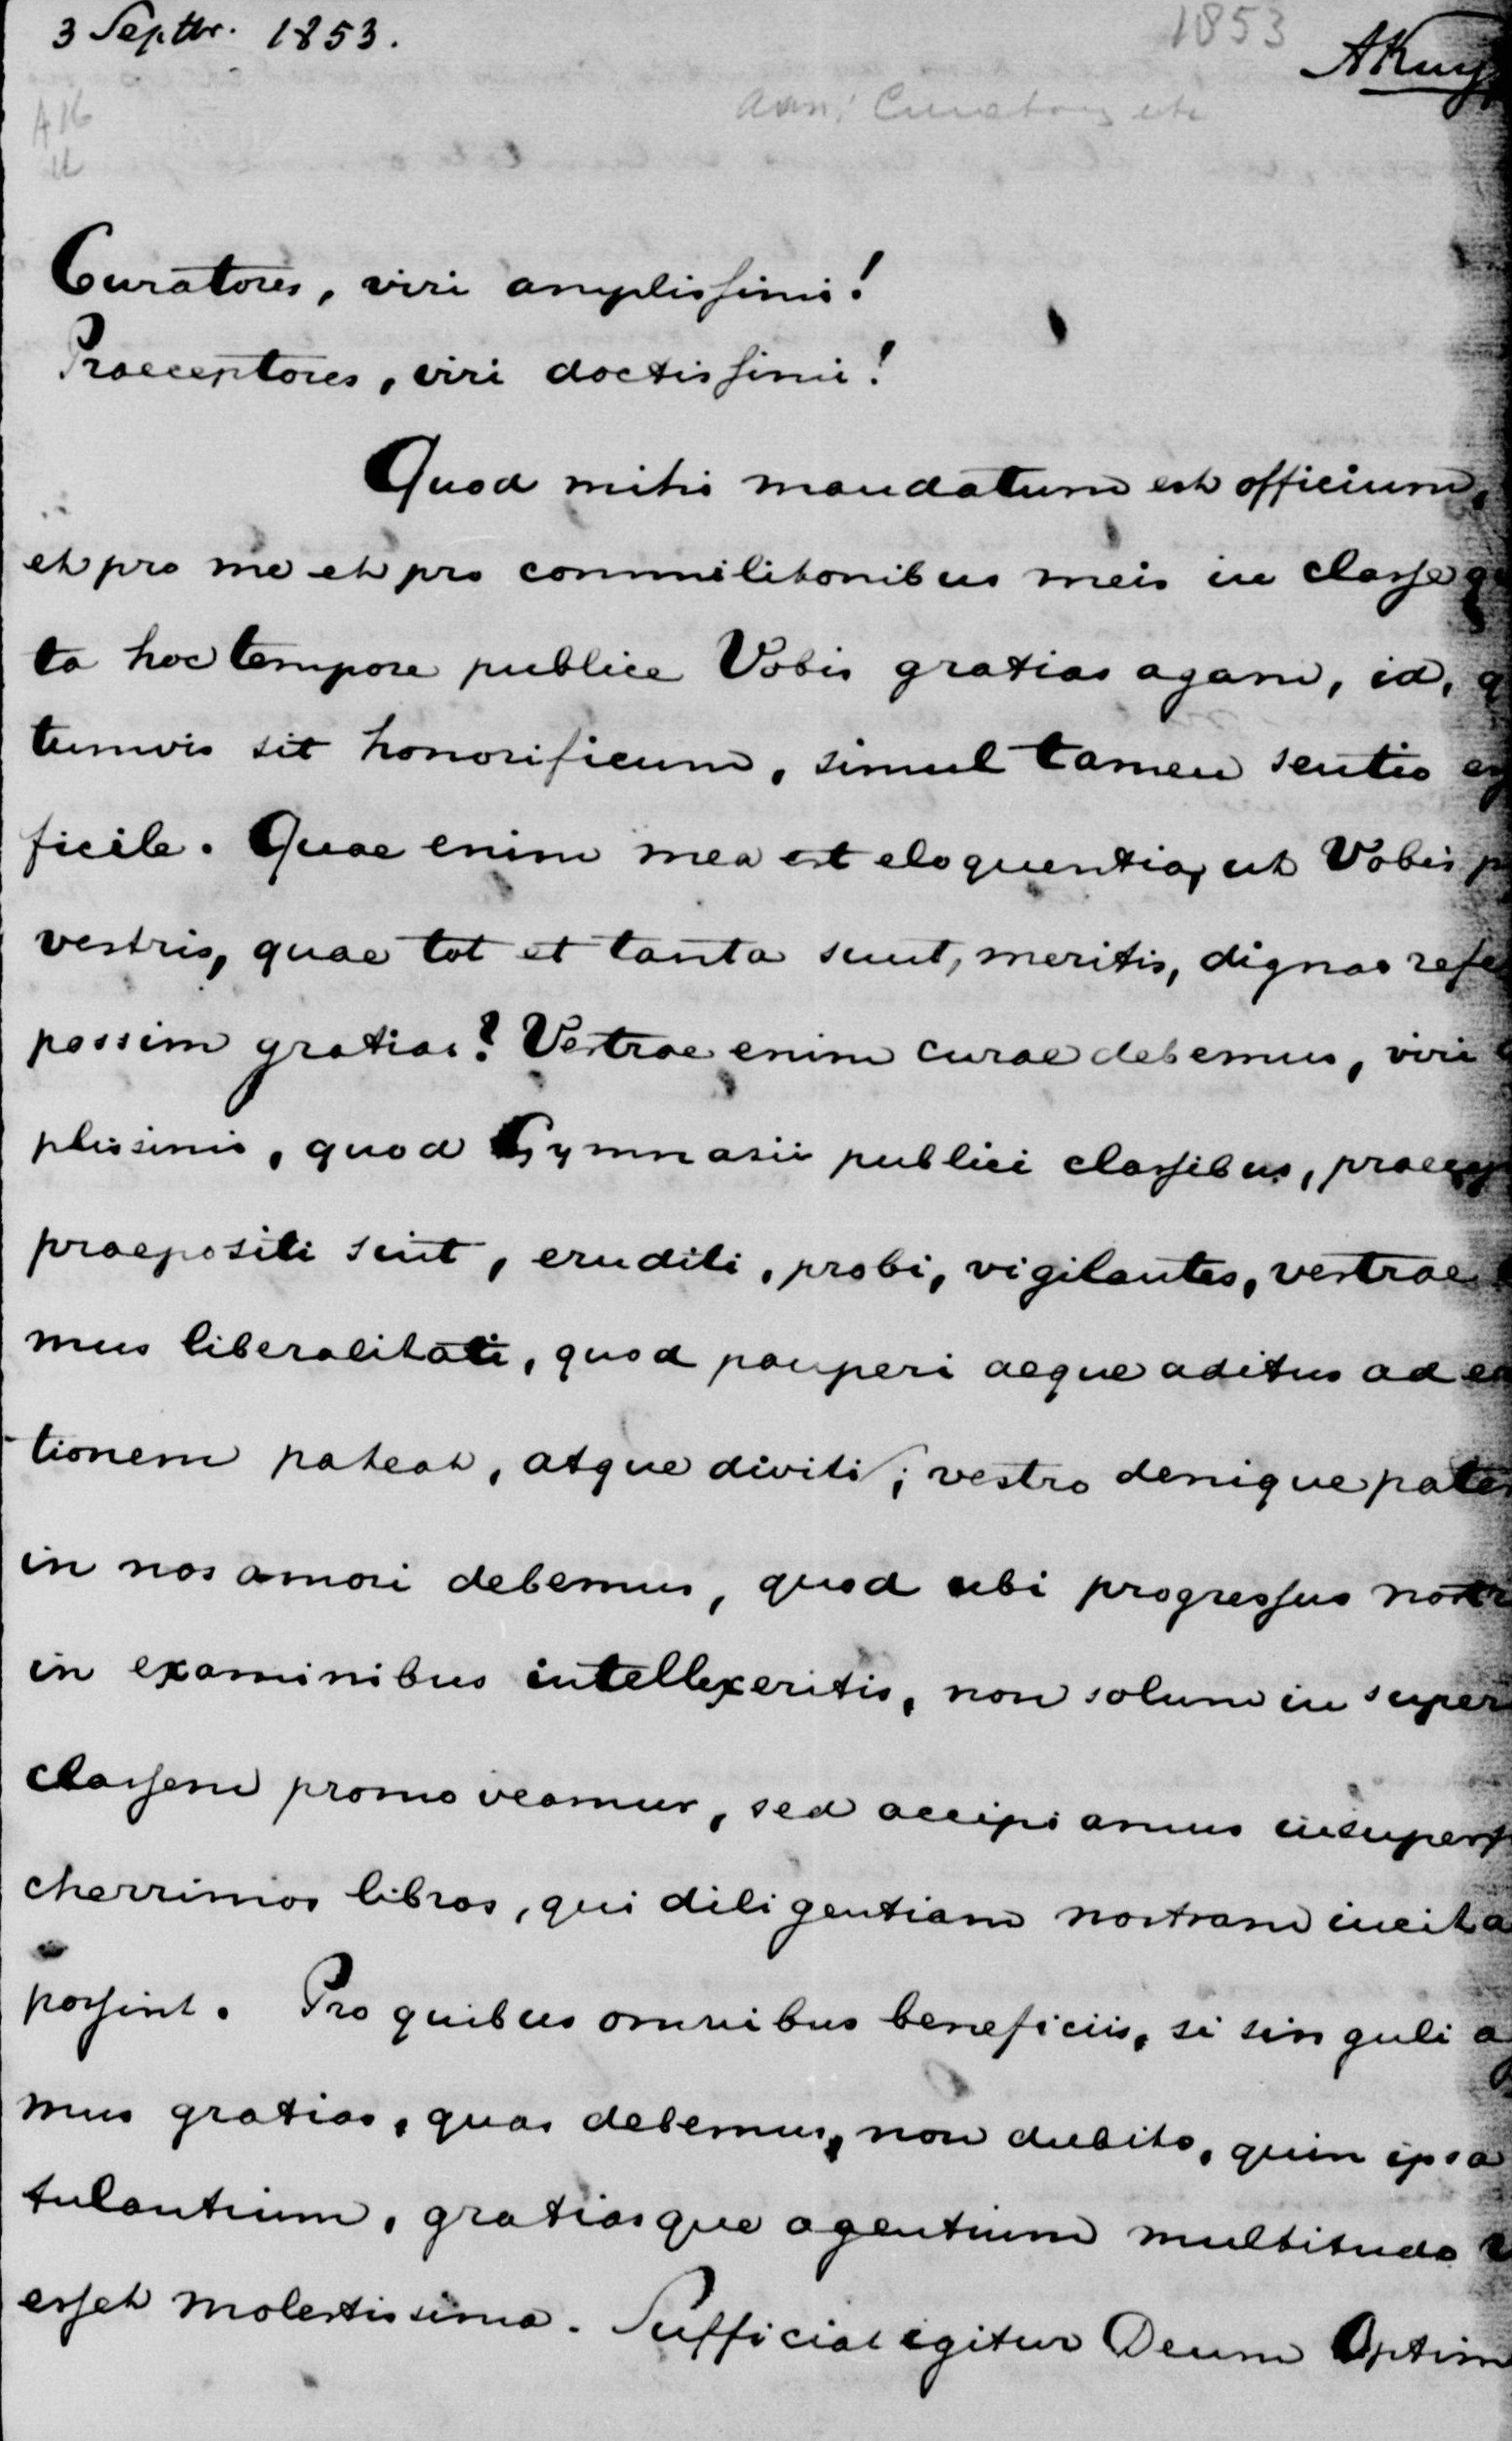 3 Septbr. 1853.
1853
AKuy
A16
aan: Curatoren etc
Curatores, viri amplissimi!
Praeceptores, viri doctissimi!
Quod mihi mandatum est officium,
et pro me et pro commilitonibus meis in classe
ta hoc tempore publice Vobis gratias agam, id,
tumvis sit honorificum, simul tamen sentio
ficile. Quae enim mea est eloquentia, ut Vobis
vestris, quae tot et tanta sunt, meritis, dignas refe
possim gratias? Vestrae enim curae debemus, viri
plissimi, quod Gymnasii publici classibus, praecep
praepositi sint, eruditi, probi, vigilantes, vestrae
mus liberalitati, quod pauperi aeque aditus ad
tionem pateat, atque diviti; vestro denique pater
in nos amori debemus, quod ubi progressus nostr
in examinibus intellexeritis, non solum in super
classem promoveamur, sed accipiamus insuper
cherrimos libros, qui diligentiam nostram incita
possint. Pro quibus omnibus beneficiis, si singuli a
mus gratias, quas debemus, non dubito, quin ipsa
tulantium, gratiasque agentium multitudo
esset molestissima. Sufficiat igitur Deum Optim